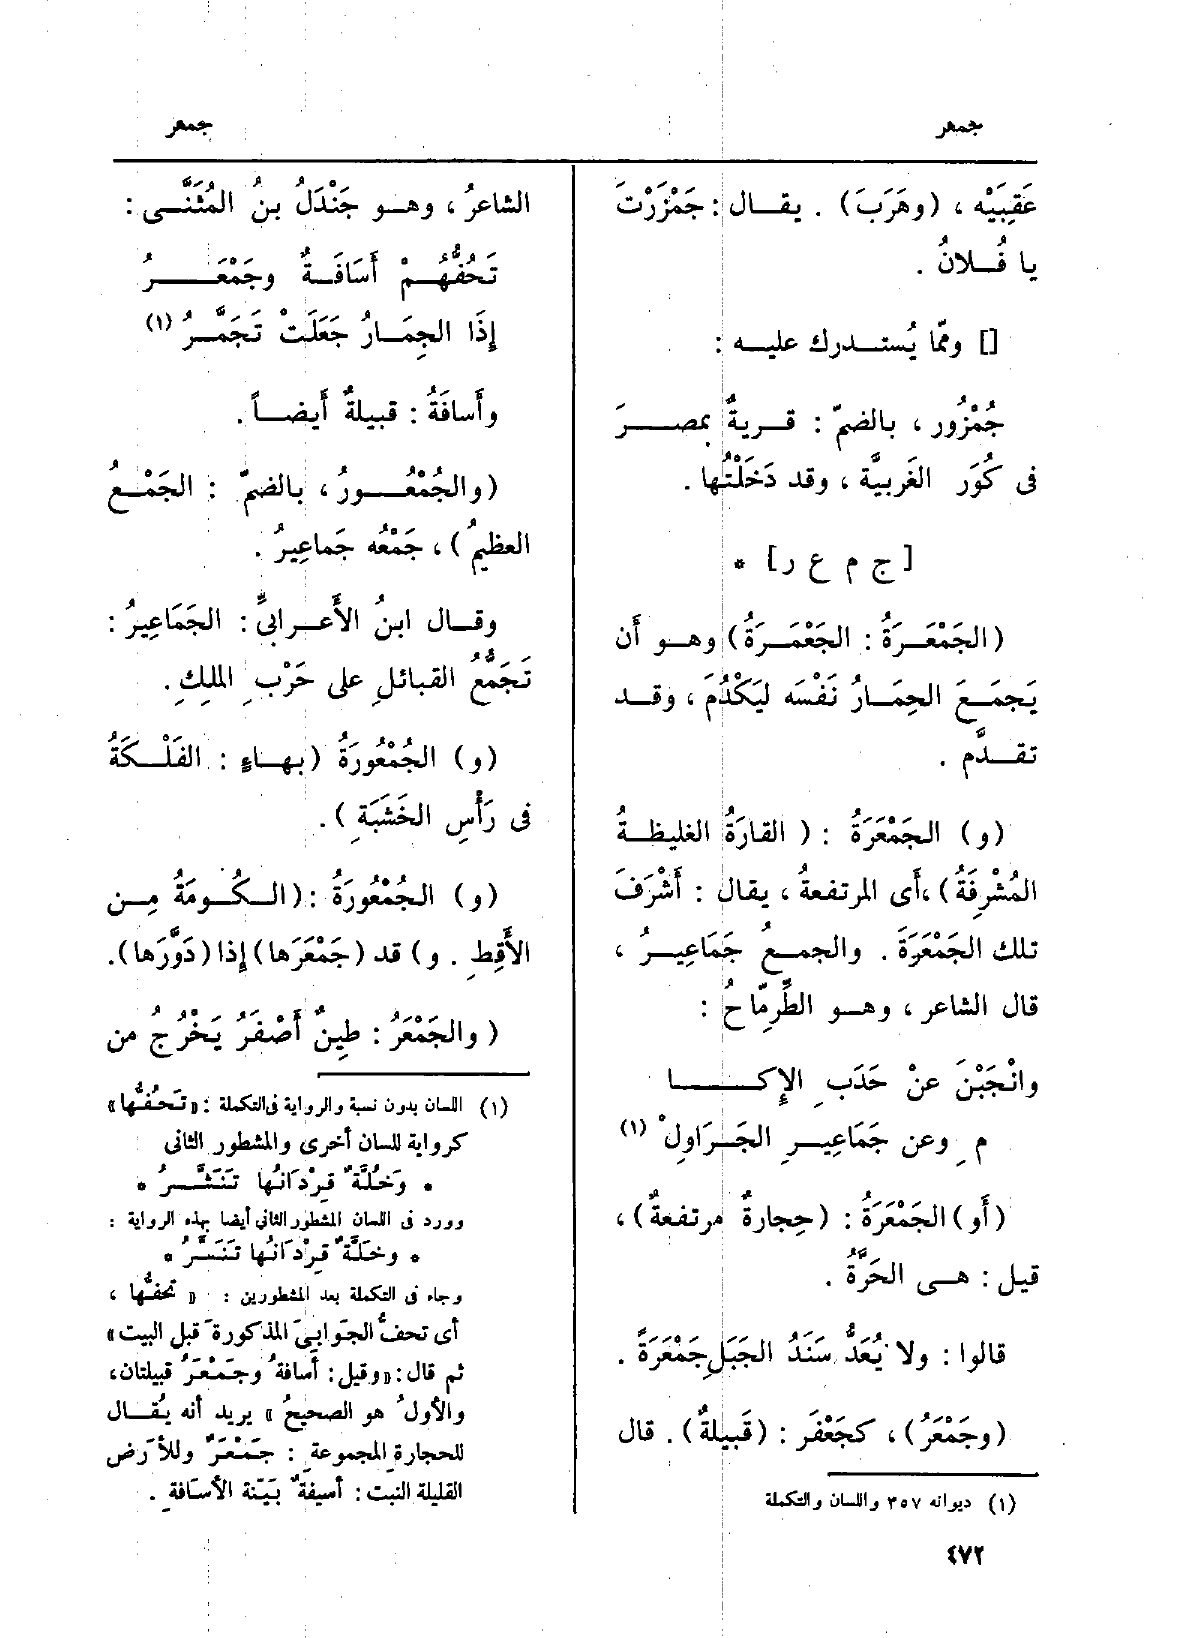 جمهر
جمهر
عَقِبَيْه ، (وهَرَبَ) . يقال : جَمْزَرْتَ
يا فُلانُ .
[] وممّا يُستدرك عليه :
جُمْزُور ، بالضمّ : قريةٌ بمصرَ
فى كُوَر الغَربيَّة ، وقد دَخَلْتُها .
[ ج م ع ر ] *
(الجَمْعَرَةُ : الجَعْمَرَةُ) وهو أن
يَجمَعَ الحِمَارُ نَفْسَه ليَكْدُمَ ، وقد
تقدَّم .
(و) الجَمْعَرَةُ : ( القارَةُ الغليظةُ
المُشْرِفَةُ) ،أى المرتفعةُ ، يقال : أَشْرَفَ
تلك الجَمْعَرَةَ . والجمعُ جَمَاعِيرُ ،
قال الشاعر ، وهو الطِّرِمّاحُ :
وانْجَبْنَ عنْ حَدَبِ الإِكا
مِ وعن جَمَاعِيرِ الجَرَاوِلْ (١)
(أو) الجَمْعَرَةُ : (حِجارةٌ مرتفعةٌ) ،
قيل : هى الحَرَّةُ .
قالوا : ولا يُعَدُّ سَنَدُ الجَبَلِ جَمْعَرَةً .
(وجَمْعَرُ) ، كجَعْفَر : (قَبِيلةٌ) . قال
(١) ديوانه ٣٥٧ واللسان والتكملة
الشاعرُ ، وهو جَنْدَلُ بنُ المُثَنَّى :
تَحُفُّهُمْ أَسَافَةٌ وجَمْعَرُ
إذَا الجِمَارُ جَعَلَتْ تَجَمَّرُ (١)
وأَسافَةُ : قبيلةٌ أَيضاً .
(والجُمْعُورُ ، بالضمّ : الجَمْعُ
العظيمُ ) ، جَمْعُه جَماعِيرُ .
وقال ابنُ الأَعرابىِّ : الجَمَاعِيرُ :
تَجَمُّعُ القبائلِ على حَرْبِ المَلِكِ .
(و) الجُمْعُورَةُ (بهاءٍ : الفَلْكَةُ
فى رَأْسِ الخَشَبَةِ ) .
(و) الجُمْعُورَةُ : (الكُومَةُ مِن
الأَقِطِ . و) قد (جَمْعَرَها) إذا (دَوَّرَها).
( والجَمْعَرُ : طِينٌ أَصْفَرُ يَخْرُجُ من
(١) اللسان بدون نسبة والرواية فى التكملة : «تَحُفُّها»
كرواية للسان أخرى والمشطور الثانى
* وَخَلَّةٌ قِرْدَانُها تَنَشَّرُ *
وورد فى اللسان المشطور الثانى أيضا بهذه الرواية :
* وخَلَّةٌ قِرْدَانُها تَنَسَّرُ *
وجاء فى التكملة بعد المشطورين : « تحُفُّها ،
أى تحفُّ الجَوابىَ المذكورةَ قبل البيت »
ثم قال : «وقيل : أَسافةُ وجَمْعَرُ قبيلتان،
والأولُ هو الصحيحُ » يريد أنه يُقال
للحجارةِ المجموعةِ : جَمْعَرٌ وللأرضِ
القليلة النبت : أسيفةٌ بَيِّنة الأسَافةِ .
٤٧٢